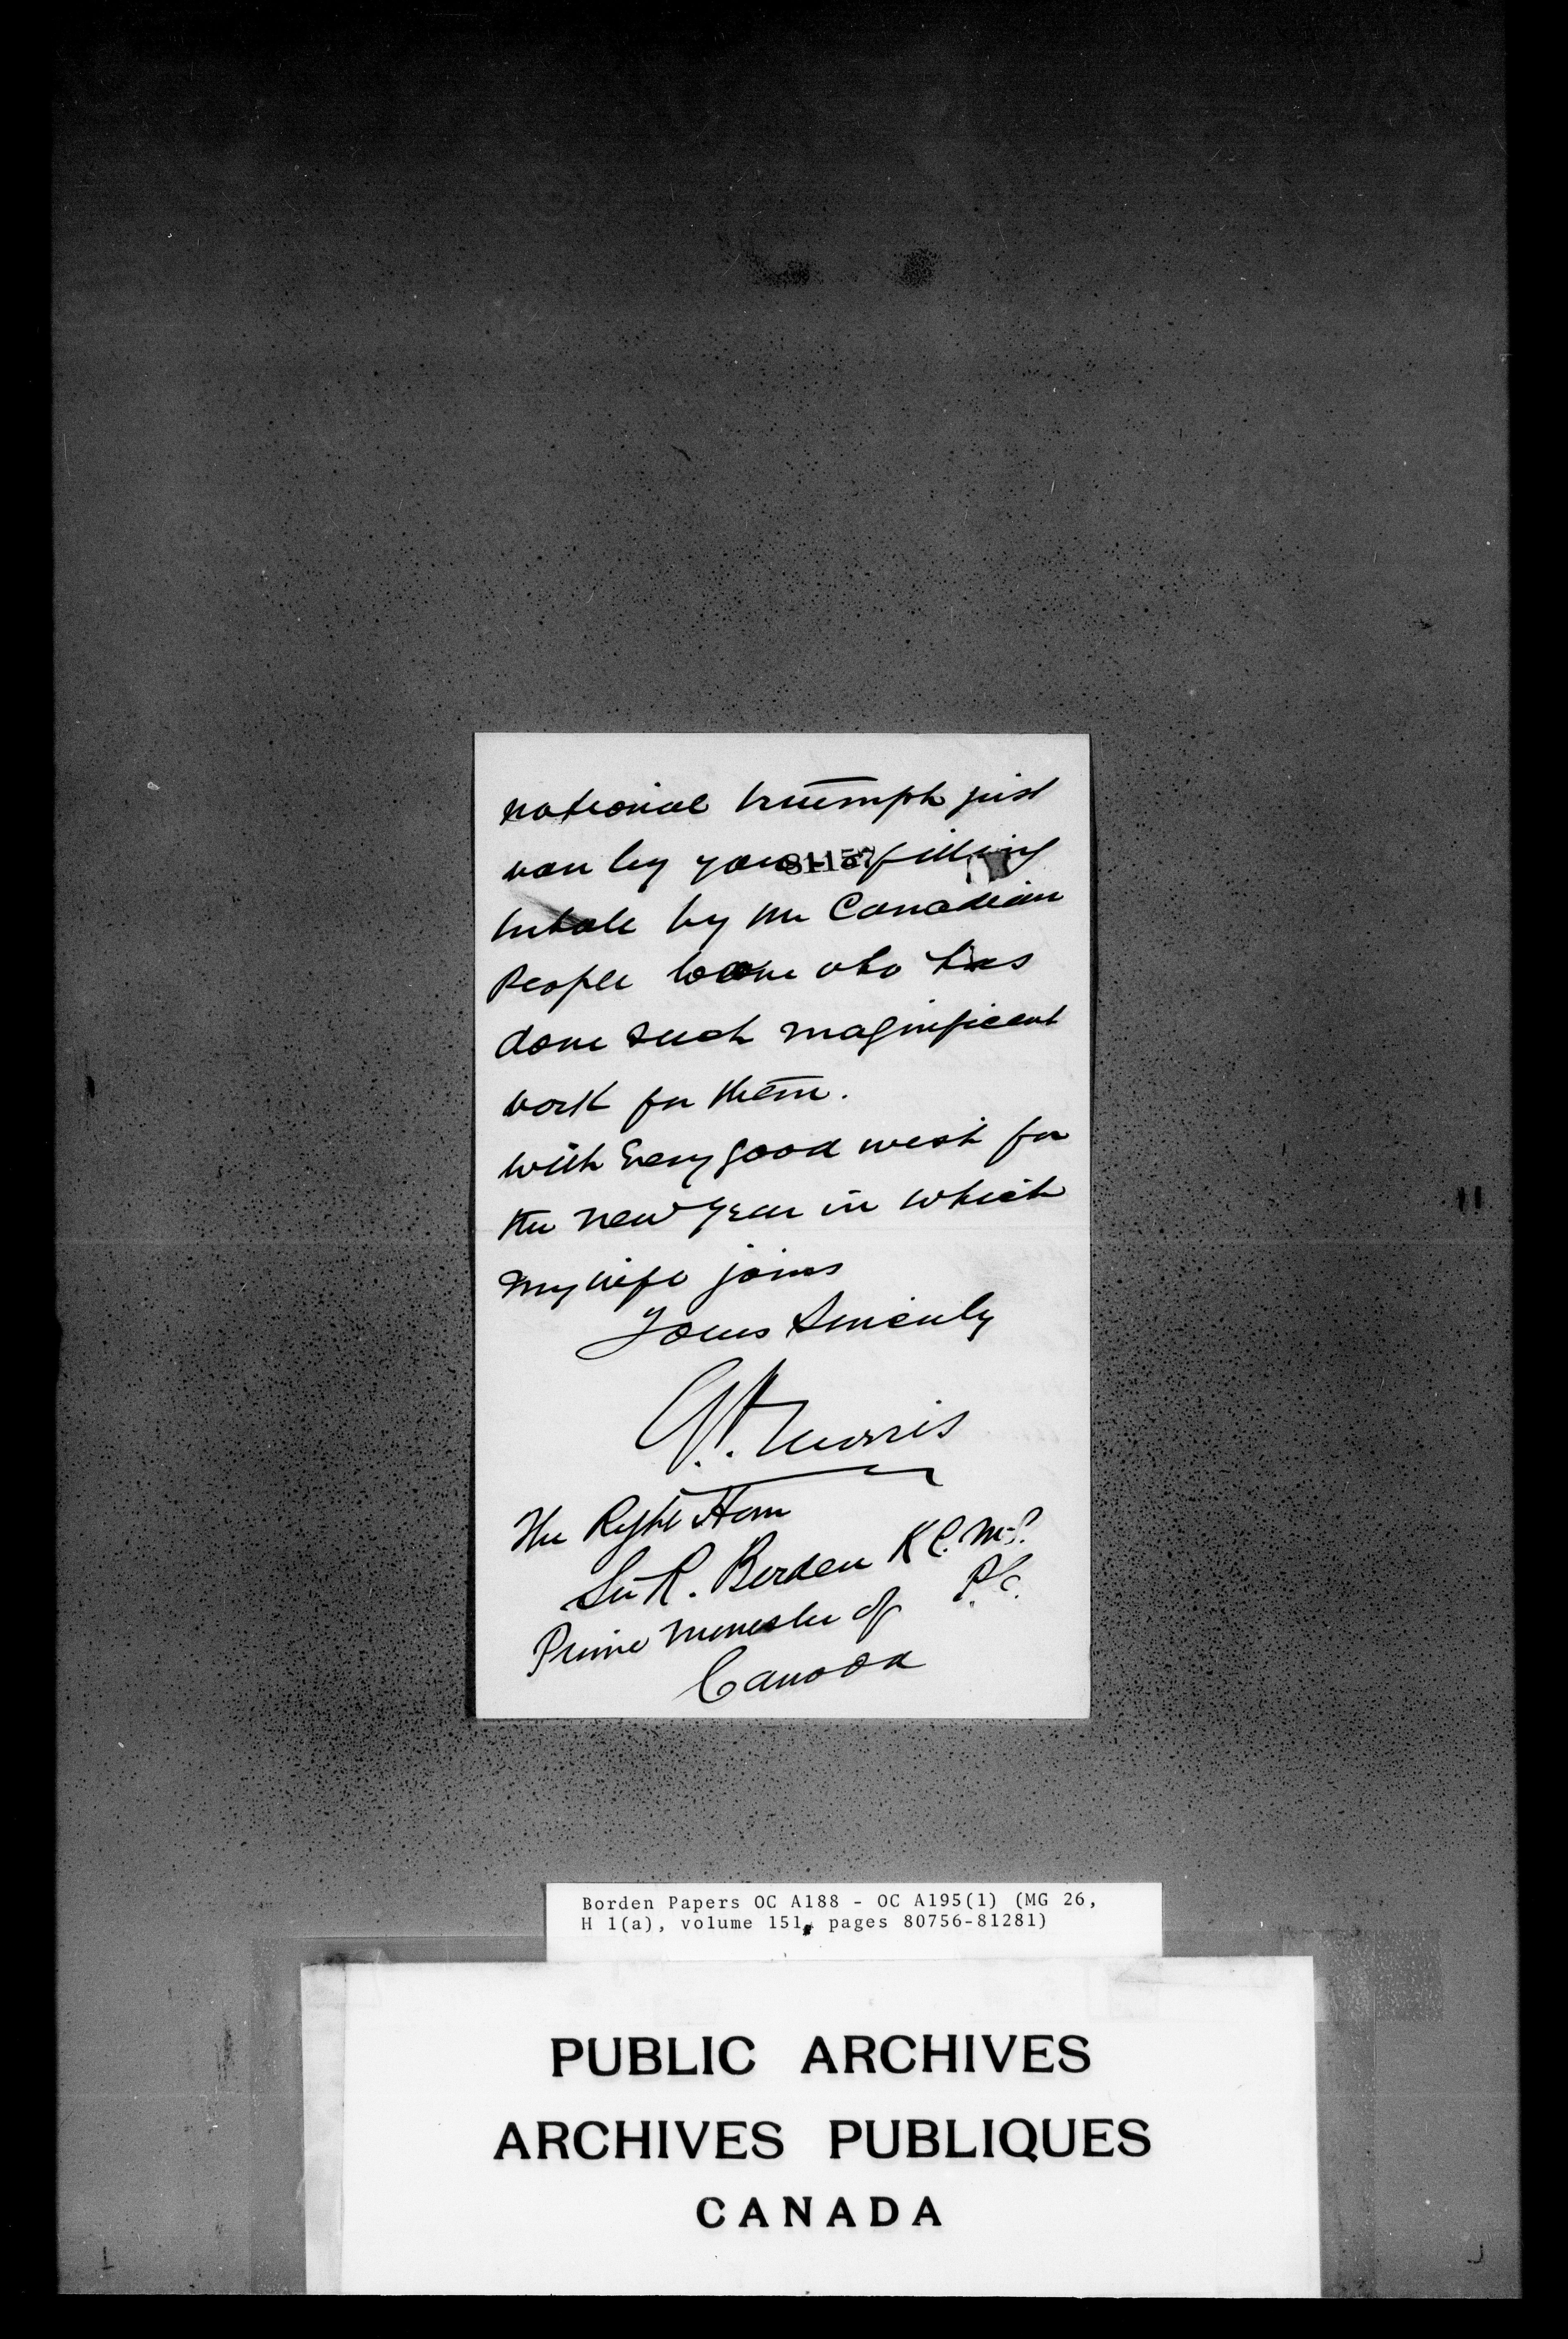 national triumph just
won by you - a fitting
81157
tribute by the Canadian
People to one who has
done such magnificent
work for them.
With Every good wish for
the new year in which
my wife joins
Yours Sincerely
Morris
The Right Hon
Sir R. Borden K.C.M.G.
P.C.
Prime Minister of
Canada
Borden Papers OC A188 - OC A195(1) (MG 26,
H 1(a), volume 151, pages 80756-81281)
PUBLIC ARCHIVES
ARCHIVES PUBLIQUES
CANADA